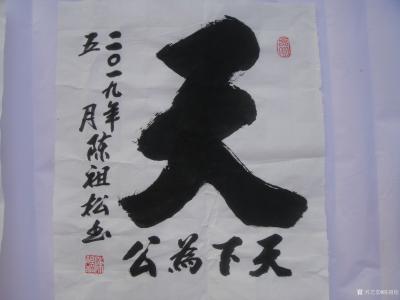 天
公為下天
二〇一九年
五月陈祖松书